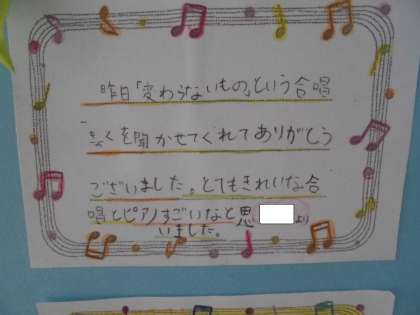 昨日「変わらないもの」という合唱
きょくを聞かせてくれてありがとう
ございました。とてもきれいな合
唱とピアノすごいなと思
いました。
より